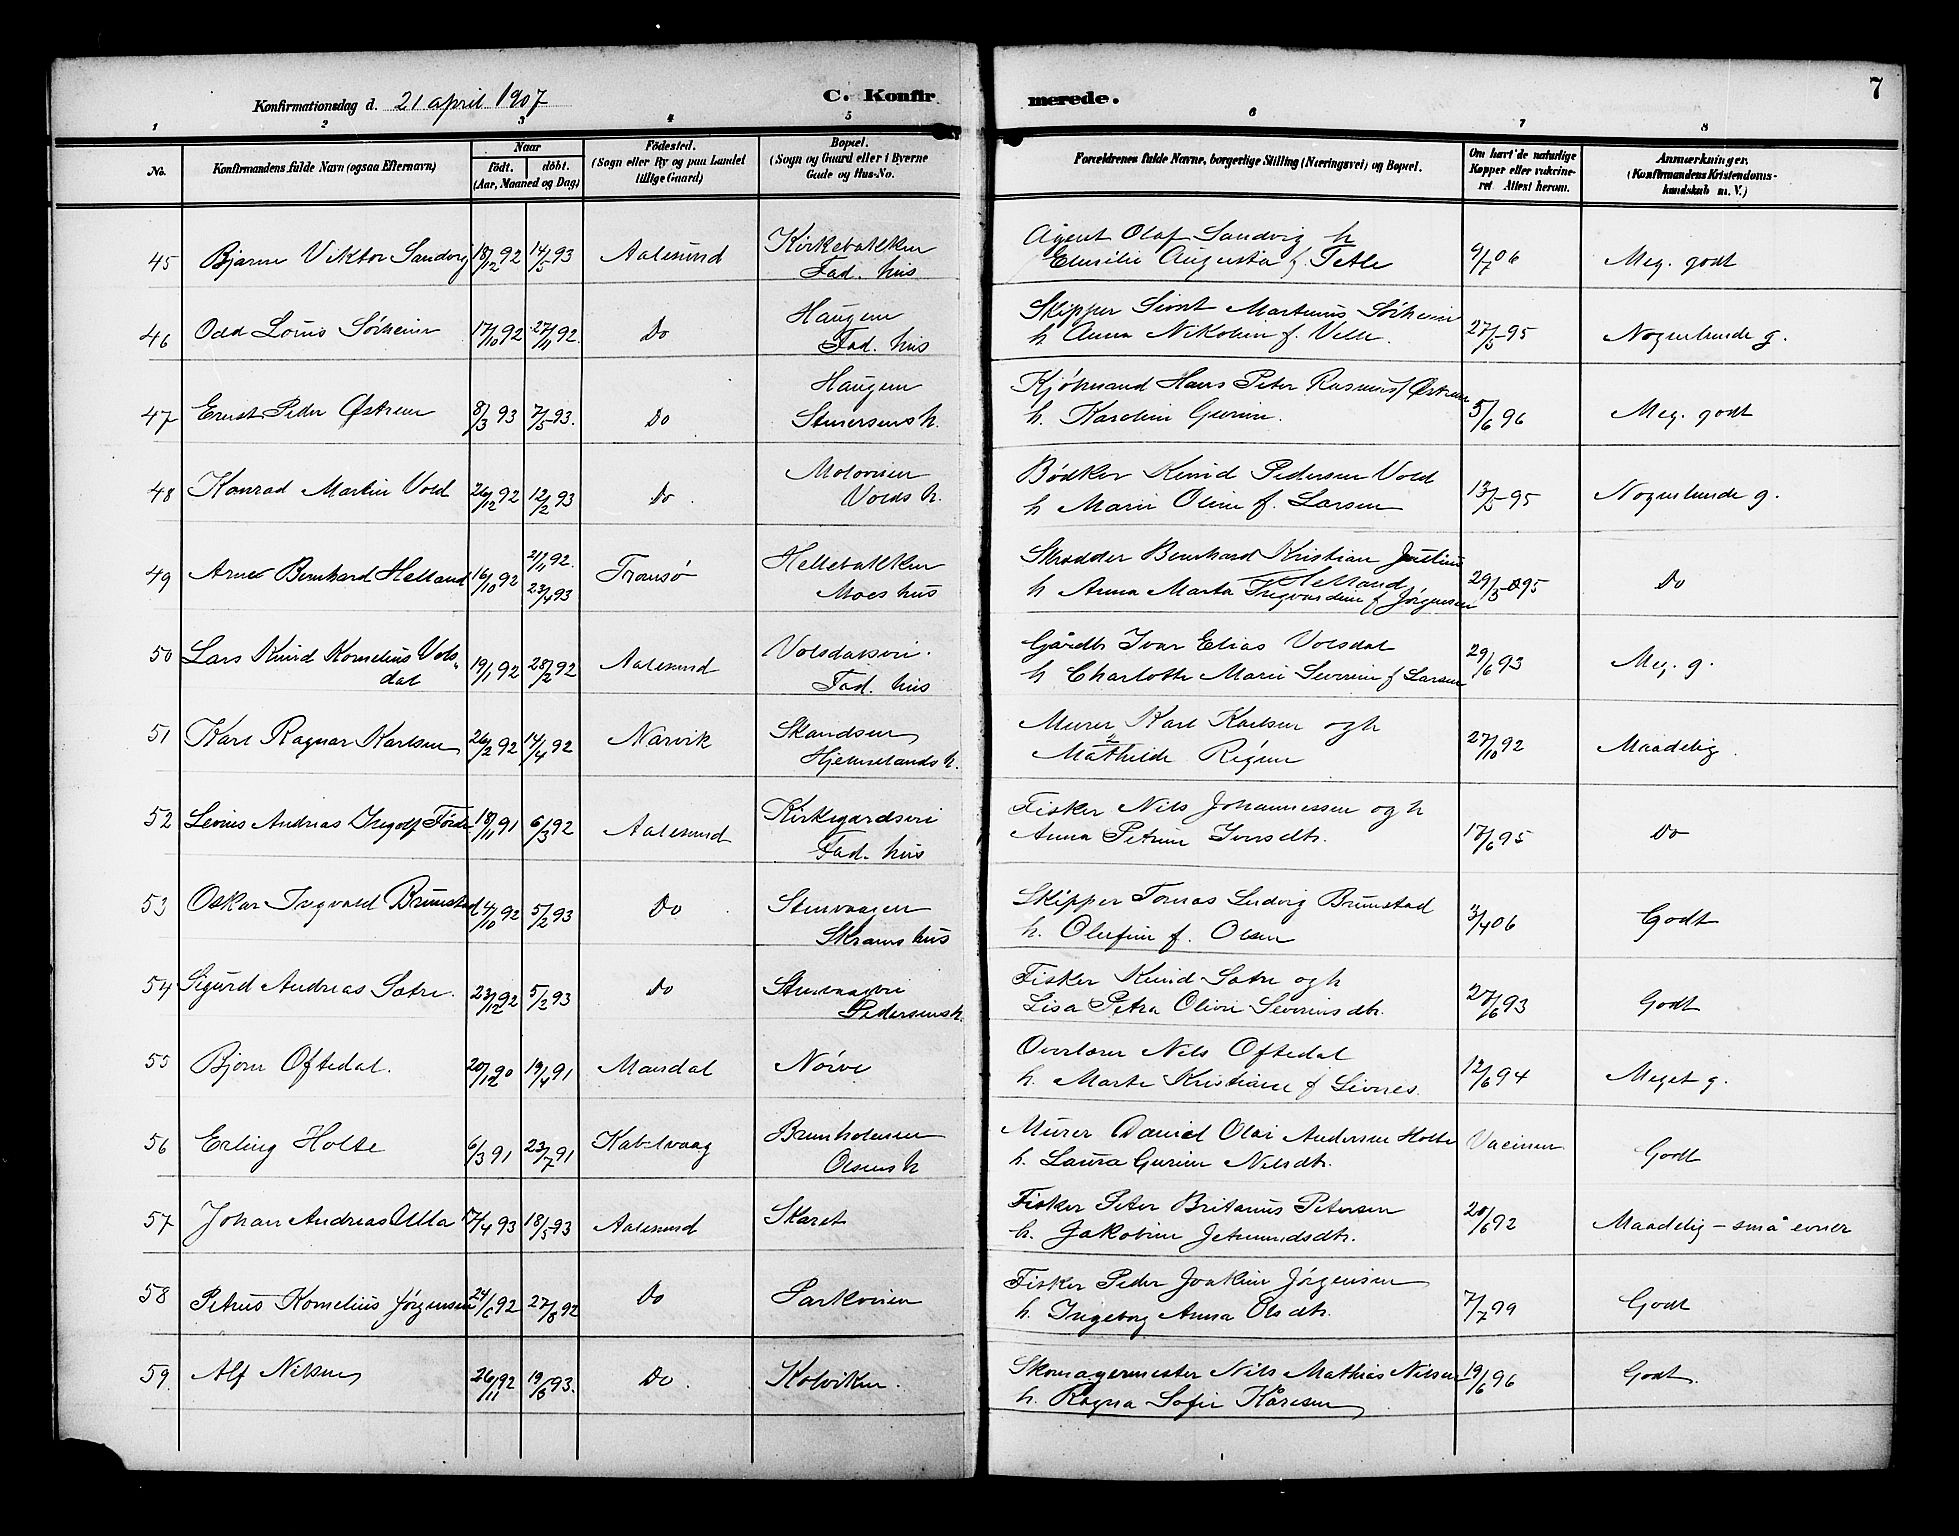 7
Konfirmationsdag d. 21 april 1907
C. Konfirmerede.
1 2 3 4 5 6 7 8
No.
Konfirmandens fulde Navn (ogsaa Efternavn)
Naar
födt. döbt.
(Aar, Maaned og Dag)
Födested.
(Sogn eller By og paa Landet
tillige Gaard)
Bopæl.
(Sogn og Gaard eller i Byerne
Gade og Hus-No.
Forældrenes fulde Navne, borgerlige Stilling (Næringsvei) og Bopæl.
Om havt de naturlige
Kopper eller vakcine-
ret. Attest herom.
Anmærkninger.
(Konfirmandens Kristendoms-
kundskab m. V.)
45 Bjarne Viktor Sandvig 18/12 92 14/5 93 Aalesund Kirkebakken
Fad. hus
Agent Olaf Sandvig h
Emilie Augusta f. Tetle 9/7 06 Meg. godt
46 Odd Louis Sörheim 17/10 92 27/11 92. Do Haugen
Fad. hus
Skipper Sivert Martinus Sörheim
h Anna Nikoline f. Velle. 27/5 95 Nogenlunde g.
47 Ernst Peder Østrem 8/3 93 7/5 93. Do Haugen
Stenersens h.
Kjöbmand Hans Peter Rasmus Østrem
h. Karoline Gurine. 5/6 96 Meg. godt
48 Konrad Martin Vold 26/12 92 12/2 93 Do. Moloveien
Volds h.
Bødker Knud Pedersen Vold
h Marie Oline f. Larsen 13/5 95 Nogenlunde g.
49 Arne Bernhard Helland 16/10 92 21/11 92. 23/4 93 Tromsö Hellebakken
Moes hus
Skrædder Bernhard Kristian Julius
Helland
h Anna Marta Ingvardine f Jörgensen 29/5 95 Do
50 Lars Knud Kornelius Vols-
dal 19/1 92 28/2 92 Aalesund Volsdalsvei.
Fad. hus
Gårdbr Ivar Elias Volsdal
h Charlotte Marie Severine f Larsen 29/6 93 Meg. g.
51 Karl Ragnar Karlsen 26/2 92 14/4 92 Narvik Skandsen
Hjemselands h.
Murer Karl Karlsen og h
Mathilde Regine 27/10 92 Maadelig.
52 Levius Andreas Ingolf Förde 18/11 91 6/3 92 Aalesund Kirkegårdsvei
Fad. hus
Fisker Nils Johannessen og h
Anna Petrine Iversdtr. 17/6 95 Do
53 Oskar Ingvald Brunstad 24/10 92 5/2 93 Do Stenvaagen
Skrams hus
Skipper Tomas Ludvig Brunstad
h. Olufine f. Olsen 3/4 06 Godt
54 Sigurd Andreas Sætre. 23/12 92 5/2 93 Do Stenvaagvei
Pedersens h.
Fisker Knud Sætre og h
Lisa Petra Olivie Severinsdtr. 27/6 93 Godt
55 Bjorn Oftedal. 20/12 90 19/4 91 Mandal Nörve
Overlærer Nils Oftedal
h. Marte Kristiane f Sivnes. 12/6 94 Meget g.
56 Erling Holte 6/3 91 23/7 91 Kabelvaag Brunholmen
Olsens h
Murer Daniel Olai Andersen Holte
h. Laura Gurine Nilsdtr. Vaccinen Godt
57 Johan Andreas Ulla 17/4 93 18/5 93 Aalesund Skaret
Fisker Peter Britanus Petersen
h. Jakobine Jetmundsdtr. 20/6 92 Maadelig – små evner
58 Petrus Kornelius Jörgensen 24/6 92 27/8 92 Do Parkveien
Fisker Peder Joakim Jörgensen
h. Ingeborg Anna Olsdtr. 7/7 99 Godt
59. Alf Nilsen 26/11 92 19/8 93. Do. Kolviken.
Skomagermester Nils Mathias Nilsen
h. Ragna Sofie Kåresen 19/6 96 Godt.